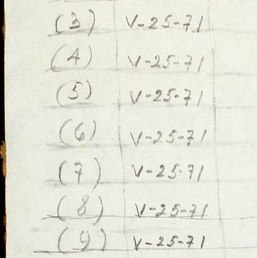 (3) V-25-71
(4) V-25-71
(5) V-25-71
(6) V-25-71
(7) V-25-71
(8) V-25-71
(9) V-25-71